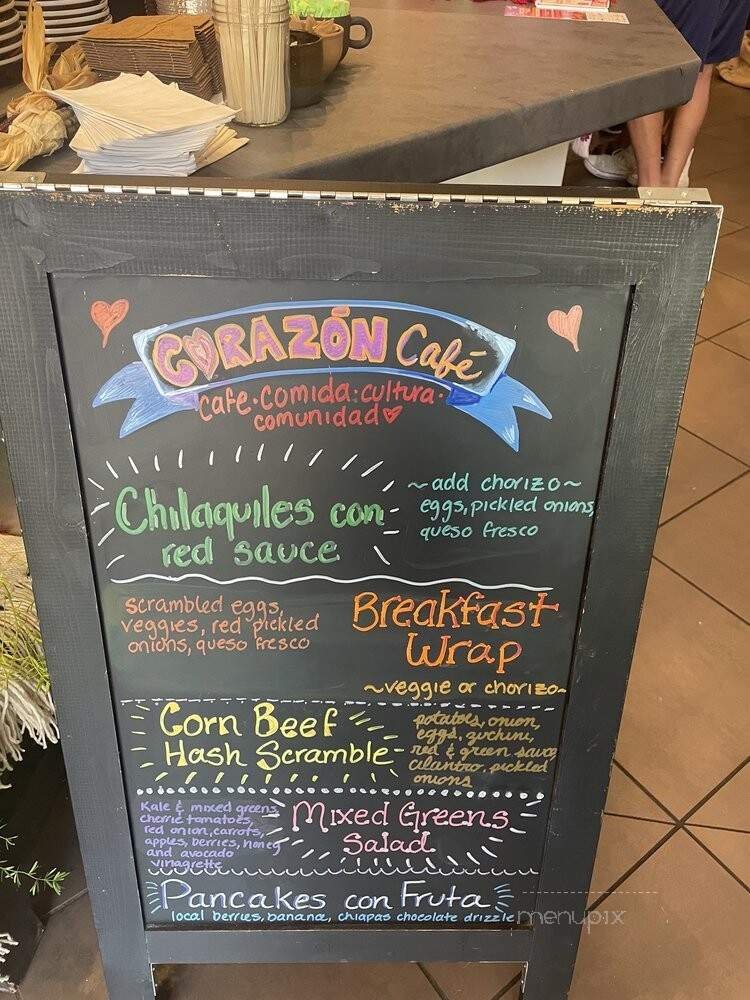 CORAZÓN Café
cafe·comida·cultura·
comunidad
Chilaquiles con
red sauce
~add chorizo~
eggs, pickled onions
queso fresco
scrambled eggs,
veggies, red pickled
onions, queso fresco
Breakfast
Wrap
~veggie or chorizo~
Corn Beef
Hash Scramble
potatoes, onion,
eggs, zuchini,
red & green sauce
cilantro, pickled
onions
Kale & mixed greens
cherrie tomatoes,
red onion, carrots,
apples, berries, honey
and avocado
vinagrette
Mixed Greens
Salad
Pancakes con Fruta
local berries, banana, chiapas chocolate drizzle
menupix